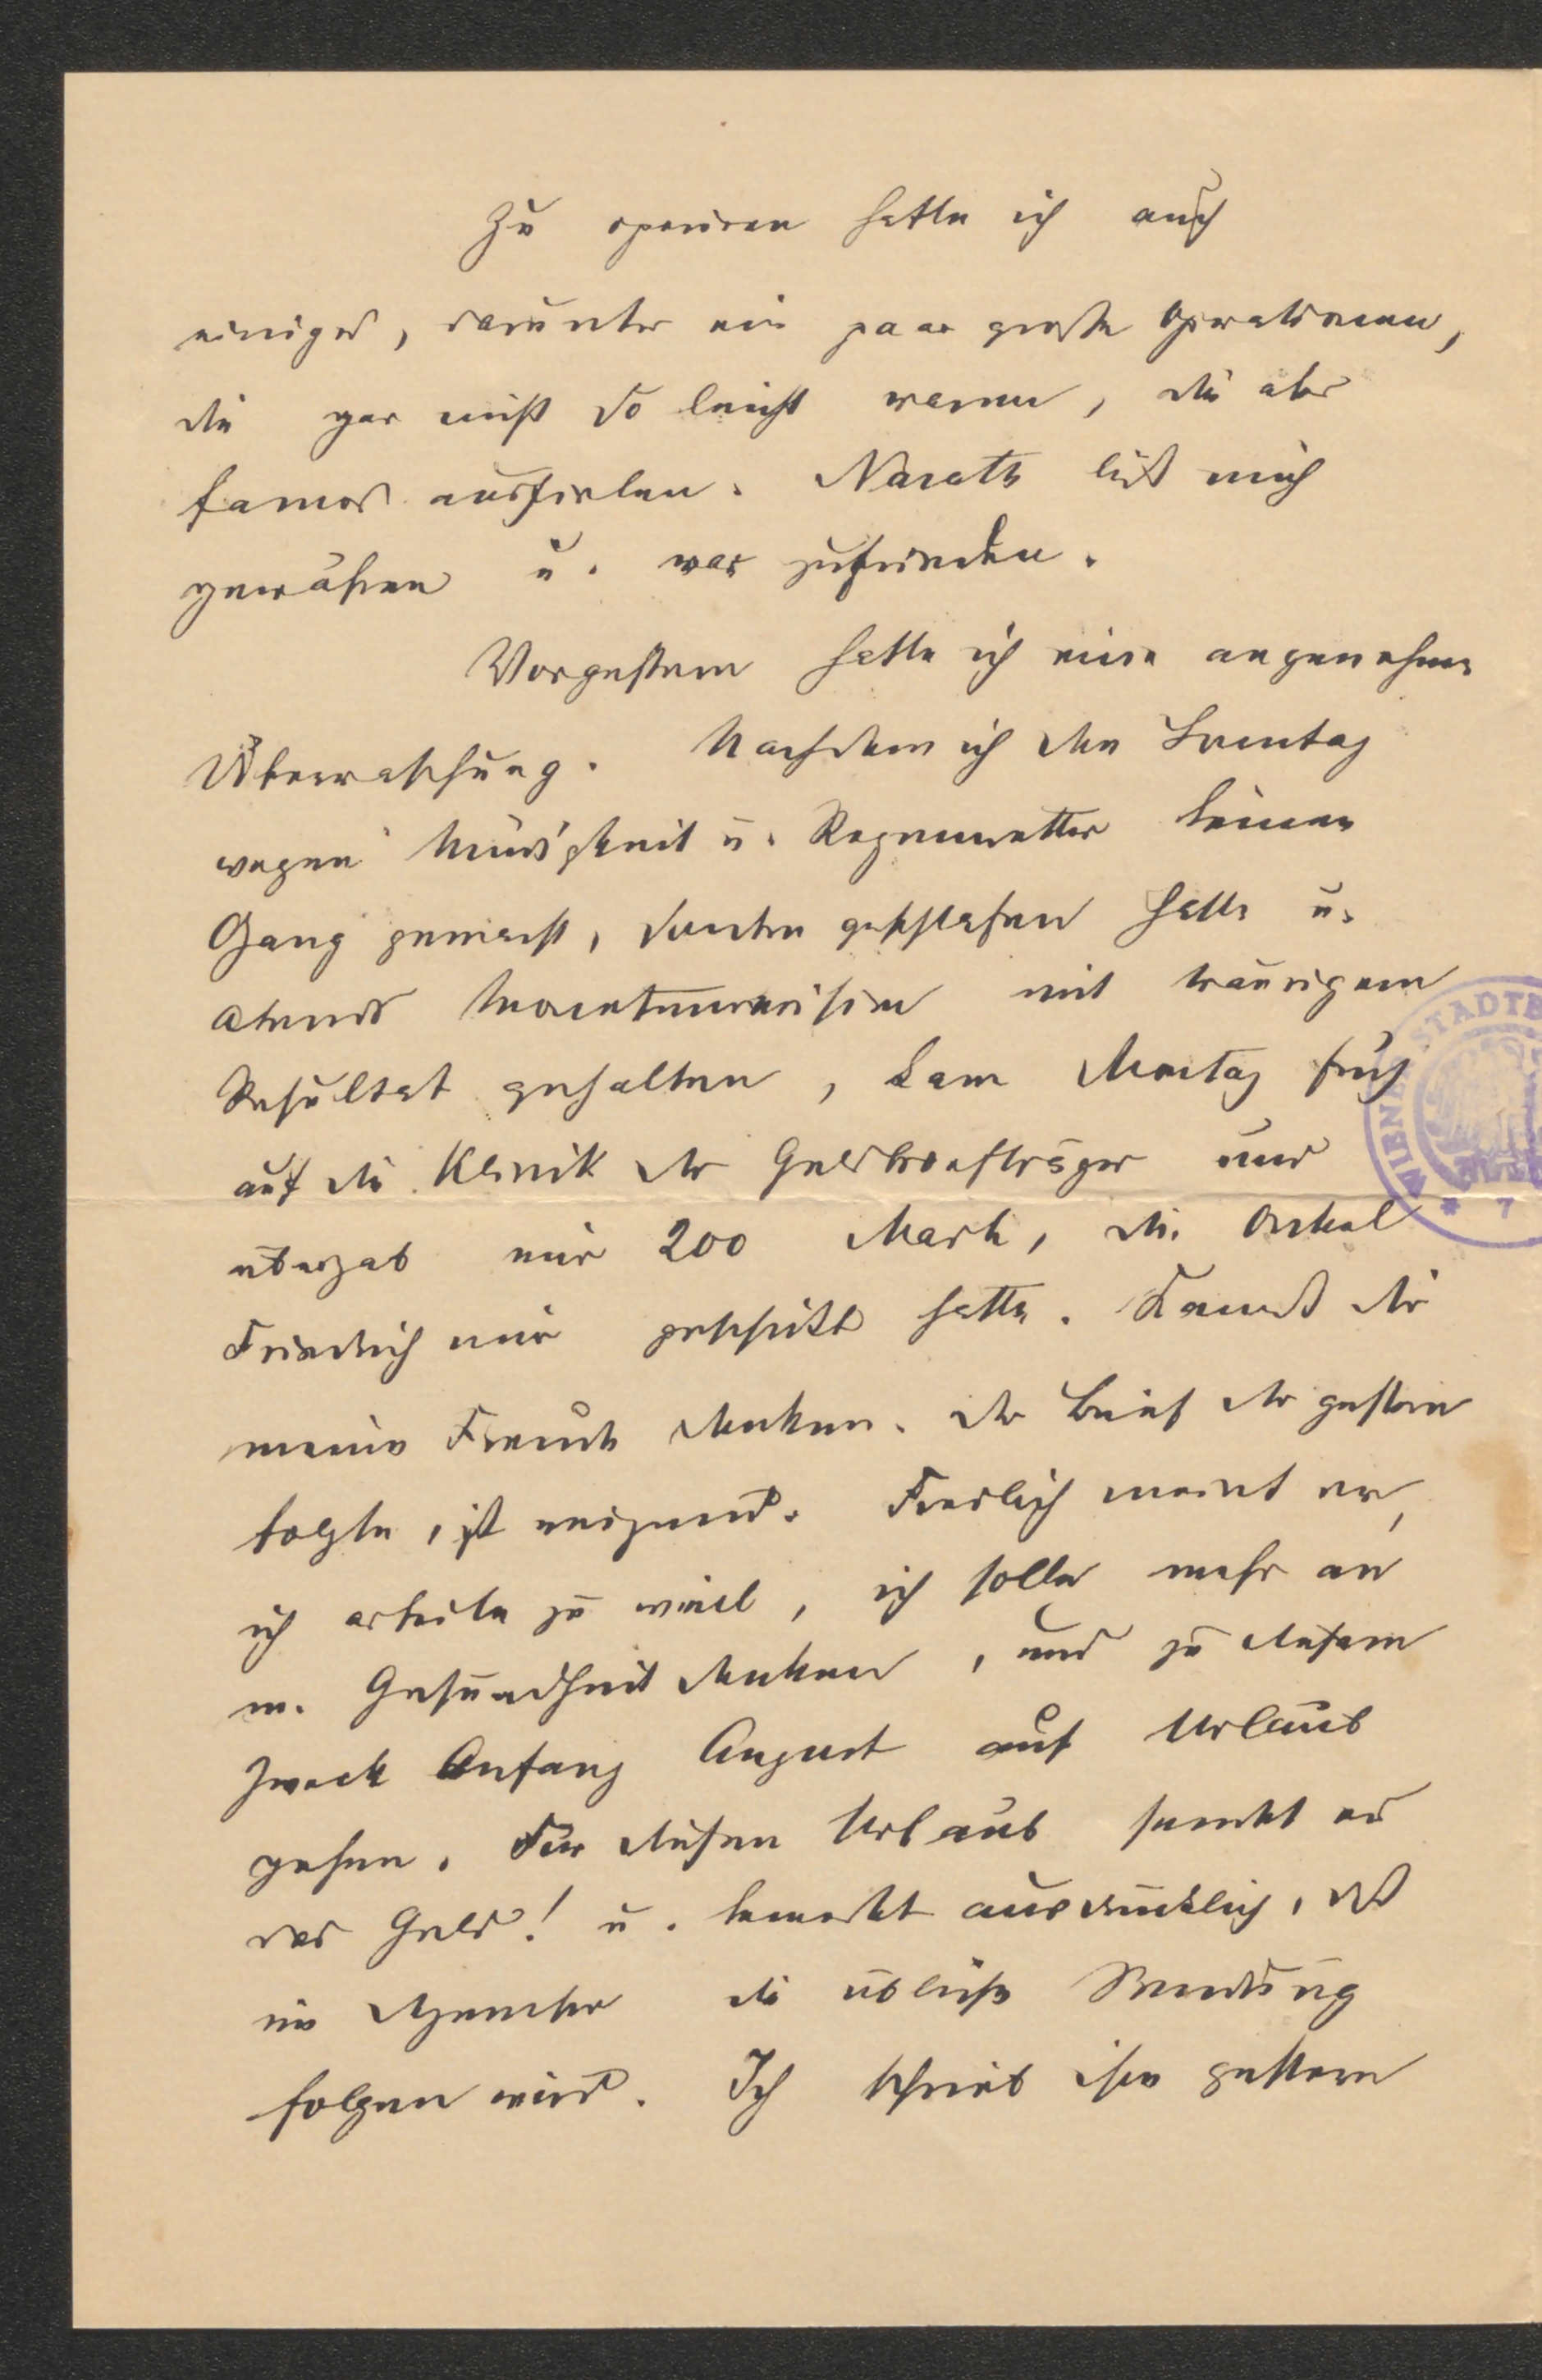 Zu operieren hatte ich auch
einiges, darunter ein paar große Operationen,
die gar nicht so leicht waren, die aber
famos ausfielen. Narath ließ mich
gewähren u. war zufrieden.
Vorgestern hatte ich eine angenehme
Überraschung. Nachdem ich den Sonntag
wegen Müdigkeit u. Regenwetter keinen
Gang gemacht, sondern geschlafen hatte u.
abends mit traurigem
Resultat gehalten, kam Montag früh
auf die Klinik der Geldbriefträger und
übergab mir 200 Mark, die Onkel
Friedrich mir geschickt hatte. Kannst dir
meine Freude denken. Der Brief der gestern
folgte, ist reizend. Freilich meint er,
ich arbeite zu viel, ich solle mehr an
m. Gesundheit denken, und zu diesem
Zweck Anfang August auf Urlaub
gehen. Für diesen Urlaub sendet er
das Geld! u. bemerkt ausdrücklich, daß
im Dezember die übliche Sendung
folgen wird. Ich schrieb ihm gestern
WIENER STADTB
* 7